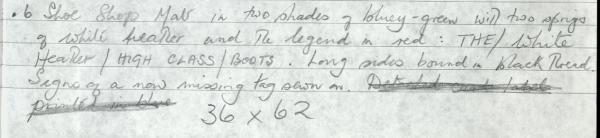 .6 Shoe Shop Mat in two shades of bluey-green with two sprigs
of white heather and the legend in red: THE/White
Heather / HIGH CLASS / BOOTS. Long sides bound in black thread.
Signs of a now missing tag sewn on. Detached card label
printed in blue
36 x 62